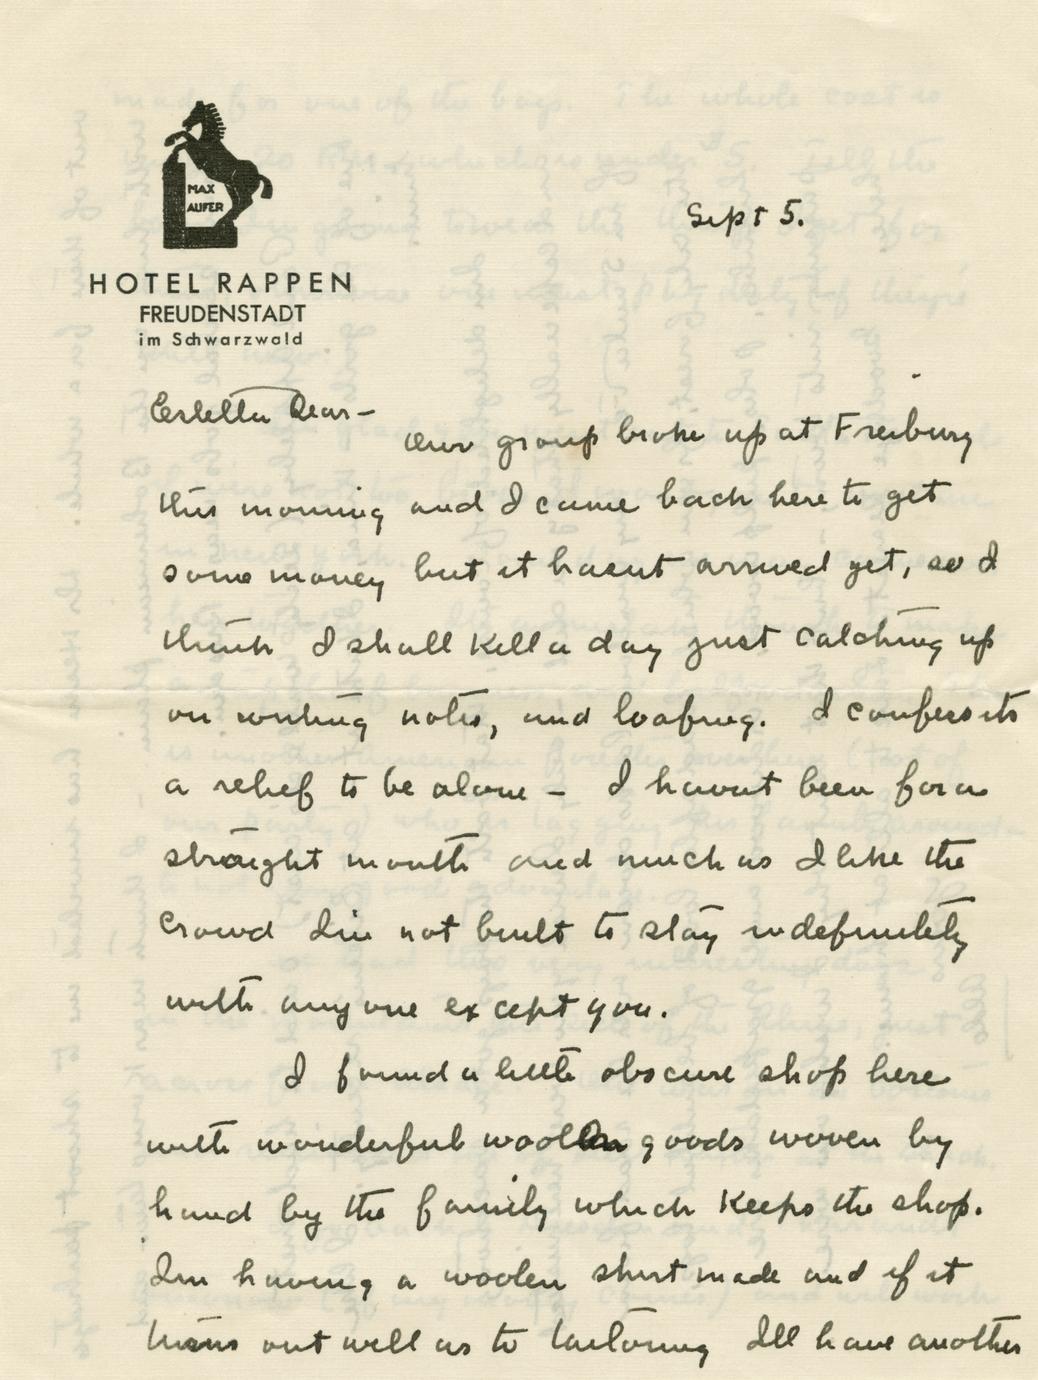 MAX
AUFER
Sept 5.
HOTEL RAPPEN
FREUDENSTADT
im Schwarzwald
Estella Dear—
Our group broke up at Freiburg
this morning and I came back here to get
some money but it hasnt arrived yet, so I
think I shall kill a day just catching up
on writing notes, and loafing. I confess its
a relief to be alone – I havent been for a
straight month and much as I like the
crowd Im not built to stay indefinitely
with anyone except you.
I found a little obscure shop here
with wonderful woolen goods woven by
hand by the family which keeps the shop.
Im having a woolen shirt made and if it
turns out well as to tailoring Ill have another